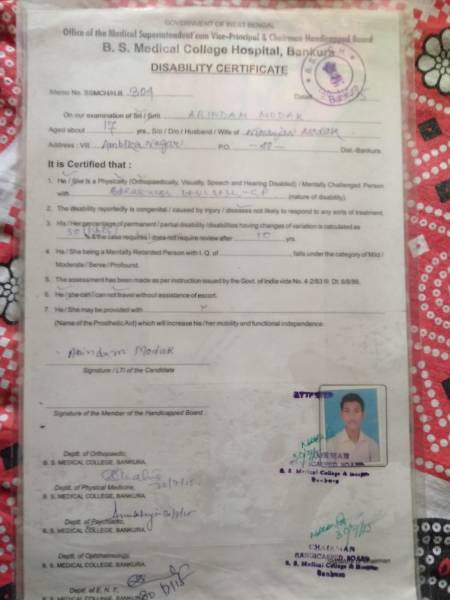 GOVERNMENT OF WEST BENGAL
Office of the Medical Superintendent cum Vice-Principal & Chairman Handicapped Board
B. S. Medical College Hospital, Bankura
DISABILITY CERTIFICATE
Memo No. BSMCH/H.B. 309
Dated
On our examination of Sri / Smt. ARINDAM MODAK
Aged about 17 yrs., S/o / D/o / Husband / Wife of MODAK
Address : Vill. Ambika Nagar P.O. Dist.-Bankura.
It is Certified that :
1. He / She is a Physically (Orthopaedically, Visually, Speech and Hearing Disabled) / Mentally Challenged Person
with (nature of disability).
2. The disability reportedly is congenital / caused by injury / diseases not likely to respond to any sorts of treatment.
3. His / Her percentage of permanent / partial disability /disabilities having changes of variation is calculated as
50 % & the case requires / does not require review after 10 yrs.
4. He / She being a Mentally Retarded Person with I. Q. of falls under the category of Mild /
Moderate / Serve / Profound.
5. The assessment has been made as per instruction issued by the Govt. of India vide No. 4-2/83 III. Dt. 6/8/86.
6. He / she can / can not travel without assistance of escort.
7. He / She may be provided with
(Name of the Prosthetic Aid) which will increase his / her mobility and functional independence.
Arindam Modak
Signature / LTI of the Candidate
Signature of the Member of the Handicapped Board
CHAIRMAN
HANDICAPPED BOARD
B. S. Medical College & Hospital
Bankura
Deptt. of Orthopaedic,
B. S. MEDICAL COLLEGE, BANKURA.
Deptt. of Physical Medicine,
B. S. MEDICAL COLLEGE, BANKURA.
Deptt. of Psychiatric,
B. S. MEDICAL COLLEGE, BANKURA.
Deptt. of Ophthalmology
B. S. MEDICAL COLLEGE, BANKURA.
CHAIRMAN
HANDICAPPED BOARD
B. S. Medical College & Hospital
Bankura
Deptt. of E. N. T.
B. S. MEDICAL COLLEGE, BANKURA.